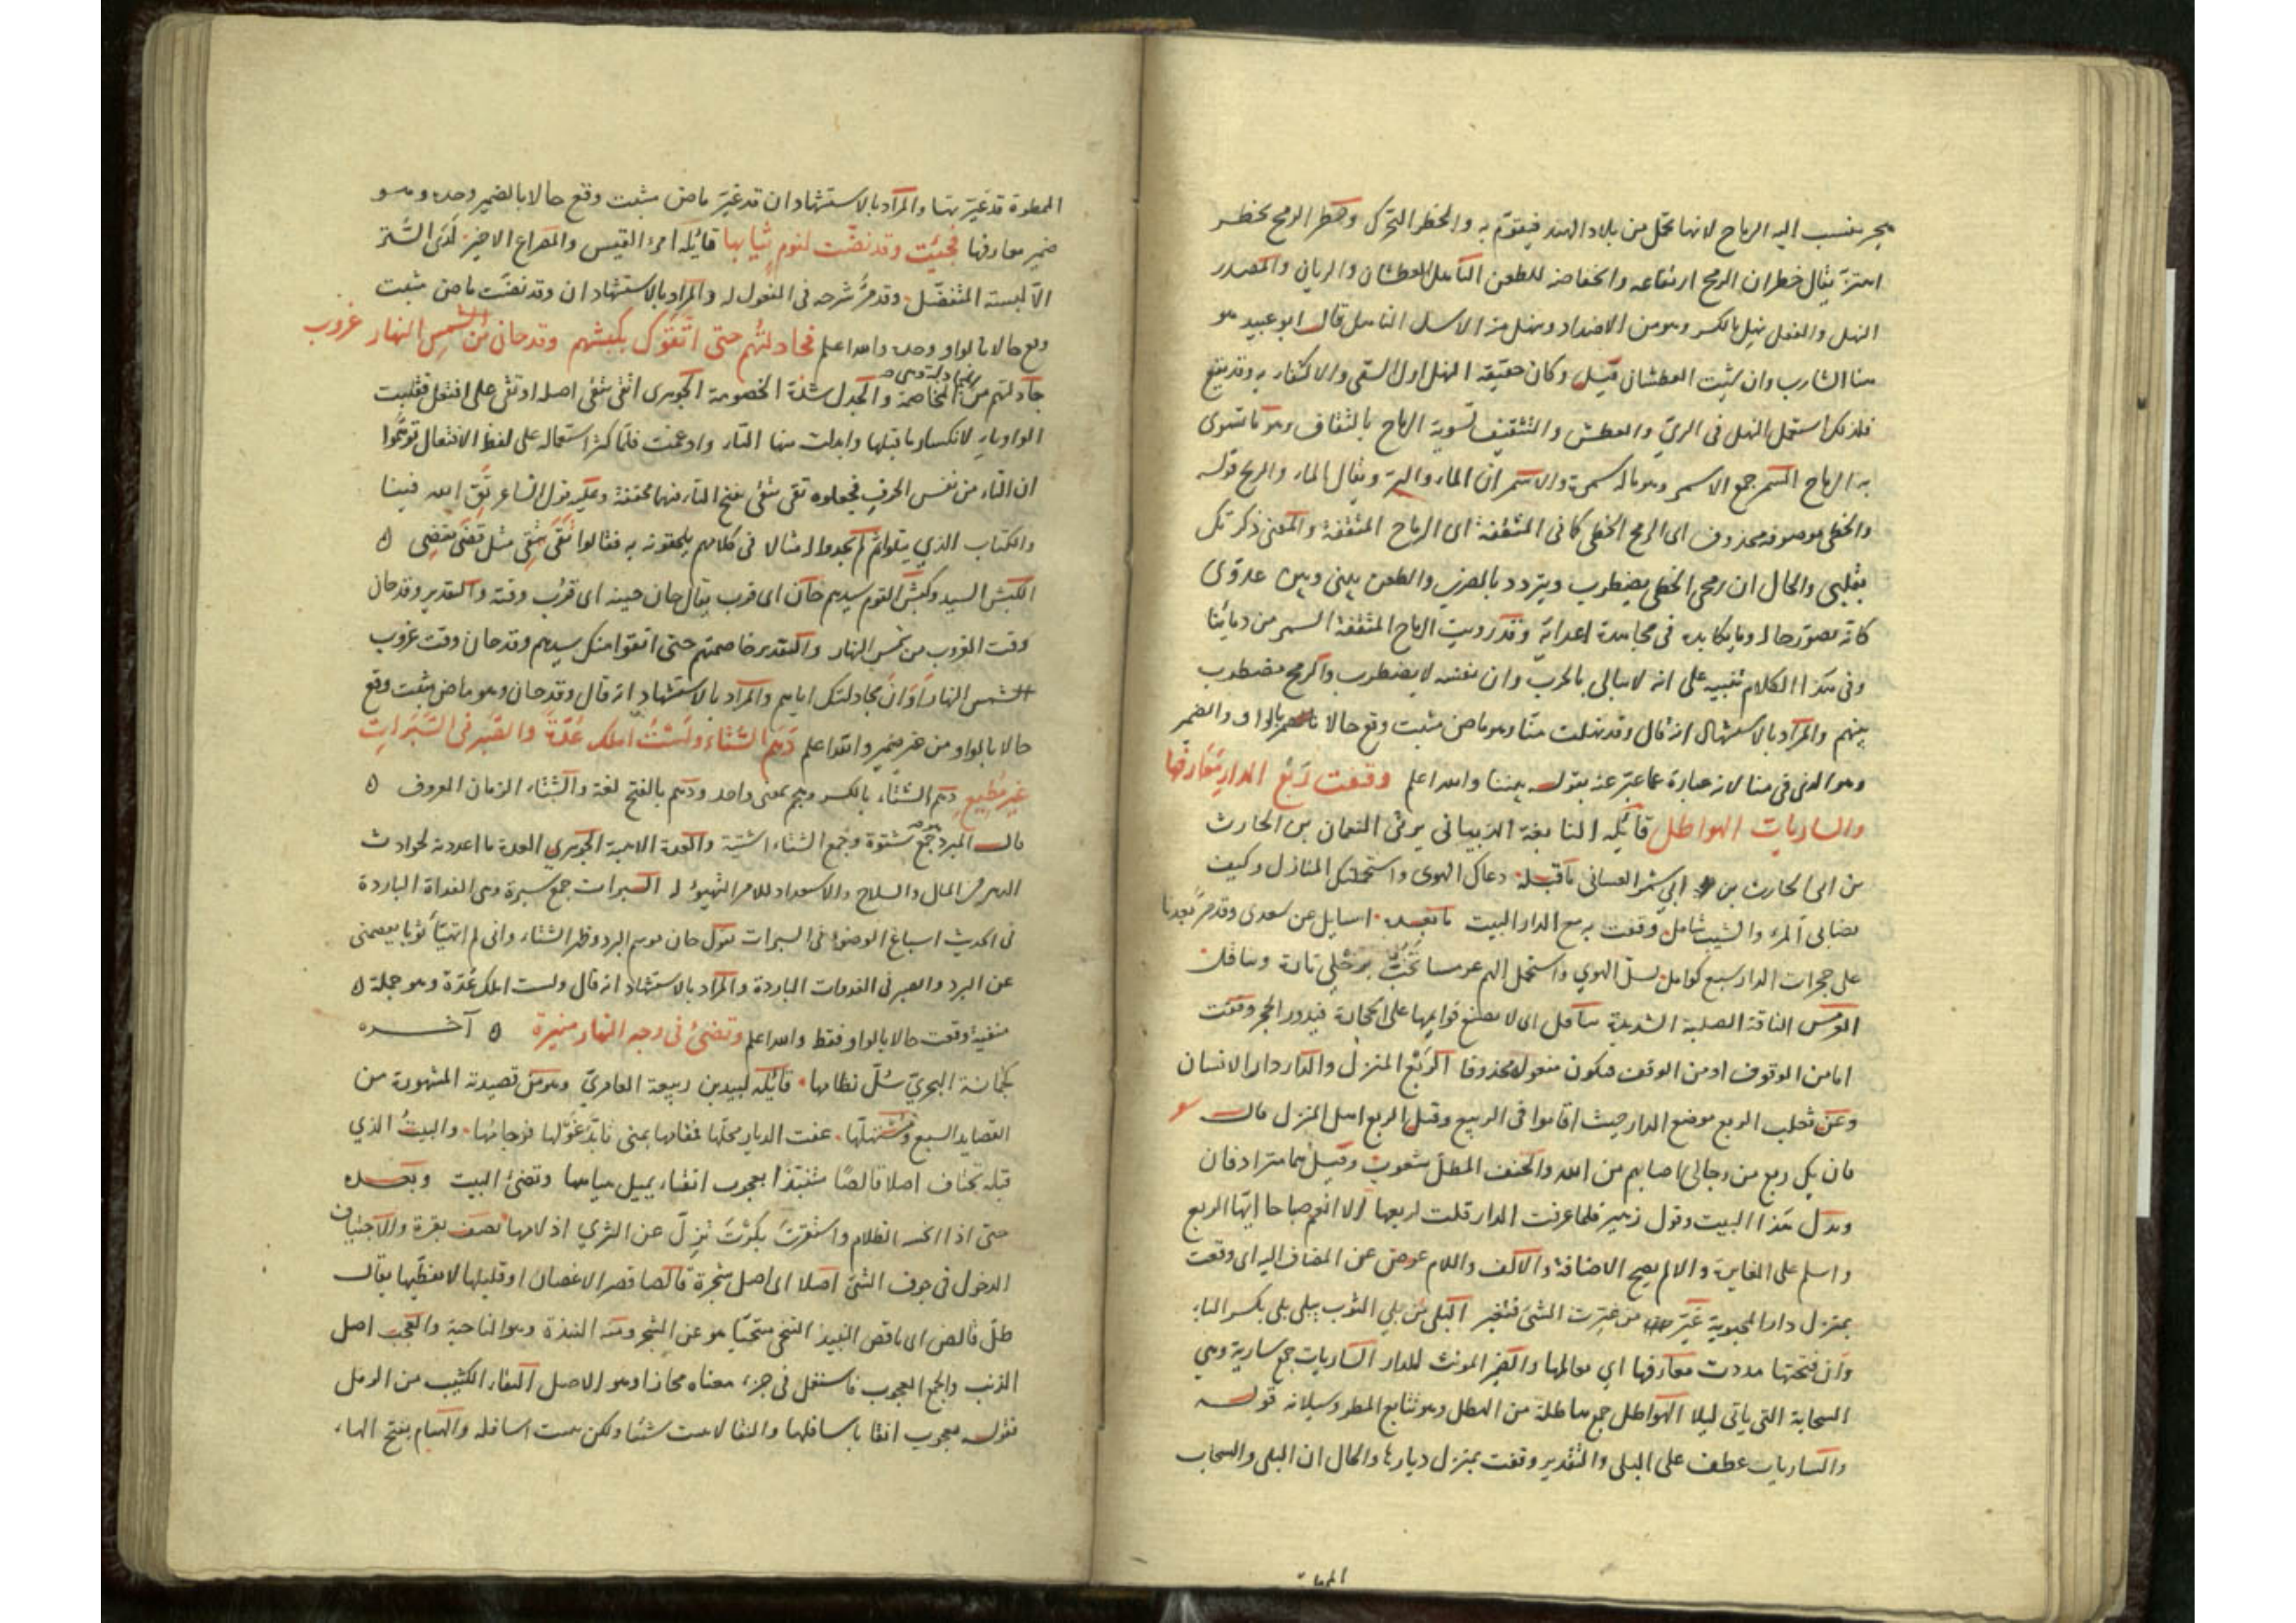 بحر ينسب اليه الرماح لانها تحمل من بلاد الهند فيقوّم به والخطر التحرك وخطر الرمح يخطر
اهتزّ يقال خطران الرمح ارتفاعه وانخفاضه للطعن الناهل العطشان والريان والمصدر
النهل والفعل نهل بالكسر وهو من الاضداد ومنهل من الاسل الناهل قال ابو عبيد هو
هنا الشارب وان شئت العطشان قيل وكان حقيقة النهل اول السقى والاكتفاء به وقد يقع
فلذلك استعمل النهل فى الرىّ والعطش والتثقيف تسوية الرماح بالثقاف وهو ما تسوى
به الرماح السمر جمع الاسمر وهو ماله سمرة والاسمران الماء والبرّ ويقال الماء والريح قوله
والخطى موصوفه محذوف اى الرمح الخطى كما فى المثقفة اى الرماح المثقفة والمعنى ذكرتك
بقلبى والحال ان رمحى الخطى يضطرب ويتردد بالضرب والطعن بينى وبين عدوّى
كانه يصوّر حاله وما يكابده فى مجاهدة اعدائه وقد رويت الرماح المثقفة السمر من دمائنا
وفى هذا الكلام تنبيه على انه لا يبالى بالحرب وان نفسه لا يضطرب والرمح مضطرب
بينهم والمراد بالاستشهاد انه قال وقد نهلت منّا وهو ماض مثبت وقع حالا بالواو والضمير
وهو الذى فى منا لانه عبارة عما عبّر عنه بقوله بيننا والله اعلم وقفت بربع الدار قد غيّر معارفها
والساريات الهواطل قائله النابغة الذبيانى يرثى النعمان بن الحارث
بن ابى الحارث بن ابى شمر الغسانى ما قبله دعاك الهوى واستجهلتك المنازل وكيف
تصابى المرء والشيب شامل وقفت بربع الدار البيت ما بعده اسايل عن سعدى وقد مرّ بعدنا
على حجرات الدار سبع كوامل
العرمس الناقة الصلبة الشديدة
اما من الوقوف او من الوقف فيكون مفعوله محذوفا الربع المنزل والدار دار الانسان
وعن ثعلب الربع موضع الدار حيث اقاموا فى الربيع وقيل الربع اهل المنزل قال
فان يك ربع من رجالى اصابهم من الله والحتف المطل شعوب وقيل هما مترادفان
ويدل هذا البيت وقول زهير فلما عرفت الدار قلت لربعها الا انعم صباحا ايها الربع
واسلم على المغايرة والا لم يصح الاضافة والالف واللام عوض عن المضاف اليه اى وقفت
بمنزل دار المحبوبة غيّر من غيرت الشئ فتغير البلى من بلى الثوب يبلى بلى بكسر الباء
وان فتحتها مددت معارفها اى معالمها والضمير المونث للدار الساريات جمع سارية وهى
السحابة التى ياتى ليلا الهواطل جمع هاطلة من الهطل وهو تتابع المطر وسيلانه قوله
والساريات عطف على البلى والتقدير وقفت بمنزل ديارها والحال ان البلى والسحاب
الممطرة
الممطرة قد غيرتها والمراد بالاستشهاد ان قد غيّر ماض مثبت وقع حالا بالضمير وحده وهو
ضمير معارفها فجئت وقد نضّت لنوم ثيابها قائله امرئ القيس والمصراع الاخير لدى الستر
الّا لبسة المتفضّل وقد مرّ شرحه فى المفعول له والمراد بالاستشهاد ان وقد نضت ماض مثبت
وقع حالا بالواو وحده والله اعلم فجادلتهم حتى اتّقوك بكبشهم وقد حان من شمس النهار غروب
جادلتهم من المجادلة وهى المخاصمة والجدل شدة الخصومة الجوهرى اتقى يتقى اصله اوتقى على افتعل فقلبت
الواو ياء لانكسار ما قبلها وابدلت منها التاء وادغمت فلمّا كثر استعماله على لفظ الافتعال توهّموا
ان التاء من نفس الحرف فجعلوه تقى يتقى بفتح التاء فيهما مخففة وعليه قول الشاعر تق الله فينا
والكتاب الذي يتلوا ثم لم يجدوا له مثالا فى كلامهم يلحقونه به فقالوا تقى يتقى مثل قضى يقضى ٥
الكبش السيد وكبش القوم سيدهم حان اى قرب يقال حان حينه اى قرب وقته والتقدير وقد حان
وقت الغروب من شمس النهار والتقدير خاصمتهم حتى اتقوا منك بسيدهم وقد حان وقت غروب
الشمس النهار اوان مجادلتك اياهم والمراد بالاستشهاد انه قال وقد حان وهو ماض مثبت وقع
حالا بالواو من غير ضمير والله اعلم دهم الشتاء ولست املك عدّة والصبر فى السّبرات
غير مطيع دهم الشتاء بالكسر وهجم بمعنى واحد ودهم بالفتح لغة والشتاء الزمان المعروف ٥
قال المبرد جمع شتوة وجمع الشتاء اشتية والعدة الاهبة الجوهري العدة ما اعددته لحوادث
الدهر من المال والسلاح والاستعداد للامر التهيؤ له السبرات جمع سبرة وهى الغداة الباردة
فى الحديث اسباغ الوضوء فى السبرات يقول حان موسم البرد وظهر الشتاء وانى لم اتهيّأ ثوبا يعصمنى
عن البرد والصبر فى الغدوات الباردة والمراد بالاستشهاد انه قال ولست املك عدّة وهو جملة ٥
منفية وقعت حالا بالواو فقط والله اعلم وتضئ فى وجه النهار منيرة ٥ آخـــره
كجمانة البحريّ سُلّ نظامها قائله لبيد بن ربيعة العامريّ وهو من قصيدته المشهورة من
القصايد السبع ومستهلّها عفت الديار محلّها فمقامها بمنى تابّد غولها فرجامها والبيت الذي
قبله تجتاف اصلا قالصًا متنبّذا بعجوب انقاء يميل هيامها وتضئ البيت وبعده
حتى اذا انحسر الظلام واسفرت بكرت تزلّ عن الثرى ازلامها يصف بقرة والاجتياف
الدخول فى جوف الشئ اصلا اى اصل شجرة قالصا قصر الاغصان او قليلها لا يغطّيها يقال
ظلّ قالص اى ناقص النبيذ التنحى متنحّيا هو عن الشجر ومنه النبذة وهو الناحية والعجب اصل
الذنب والجمع العجوب فاستعمل فى جزء معناه مجازا وهو الاصل النقا الكثيب من الرمل
بقوله بعجوب انقا باسافلها والنقا